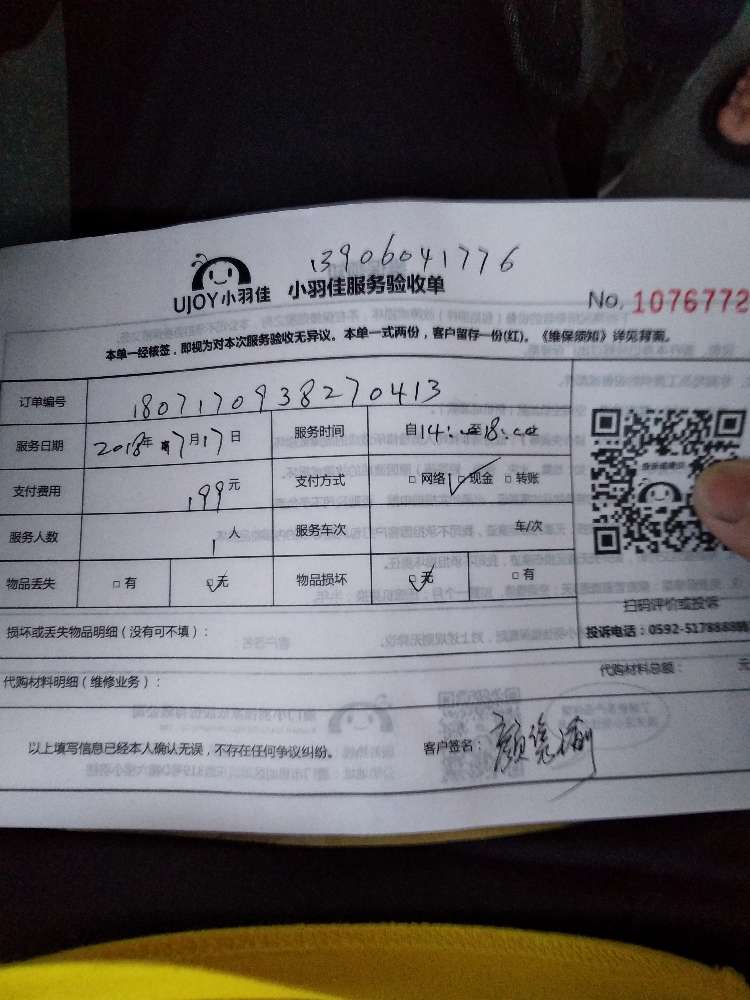 13906041776
UJOY小羽佳 小羽佳服务验收单
No. 1076772
本单一经核签，即视为对本次服务验收无异议。本单一式两份，客户留存一份(红)。《维保须知》详见背面。
订单编号 180717093827 0413
服务日期 2018年7月17日 服务时间 自14:00至18:00
支付费用 199元 支付方式 □ 网络 ☑ 现金 □ 转账
服务人数 1人 服务车次 车/次
物品丢失 □ 有 ☑ 无 物品损坏 ☑ 无 □ 有
扫码评价或投诉
损坏或丢失物品明细（没有可不填）：
投诉电话：0592-5178888
代购材料明细（维修业务）： 代购材料总额： 元
以上填写信息已经本人确认无误，不存在任何争议纠纷。 客户签名：